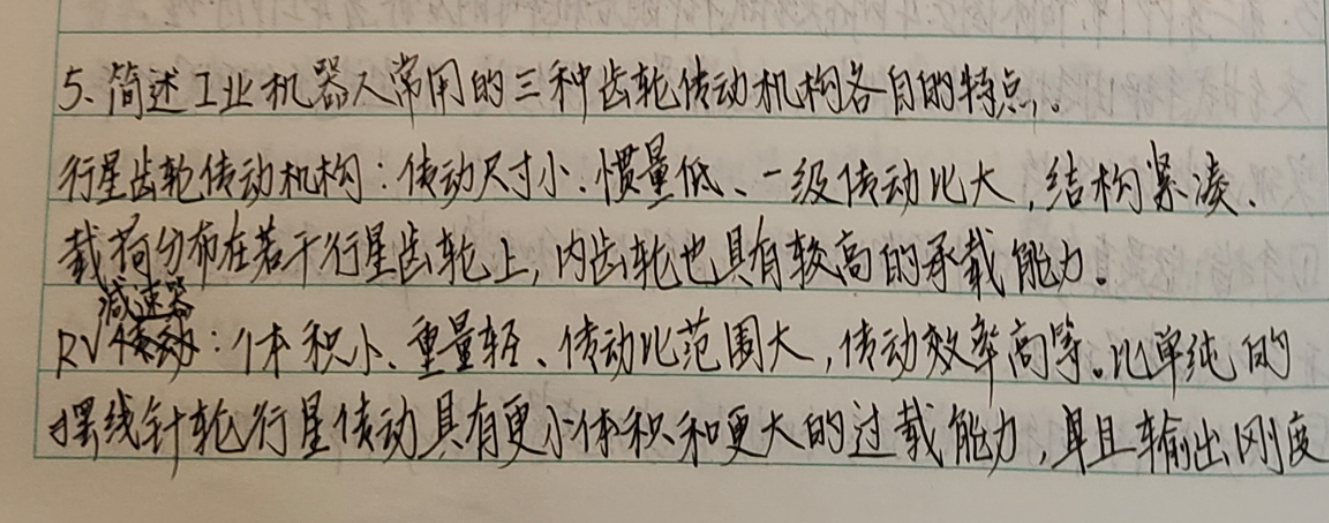 5、简述工业机器人常用的三种齿轮传动机构各自的特点。
行星齿轮传动机构：传动尺寸小、惯量低、一级传动比大，结构紧凑、
载荷分布在若干行星齿轮上，内齿轮也具有较高的承载能力。
减速器
RV：体积小、重量轻、传动比范围大，传动效率高等。比单纯的
摆线针轮行星传动具有更小体积和更大的过载能力，且输出刚度